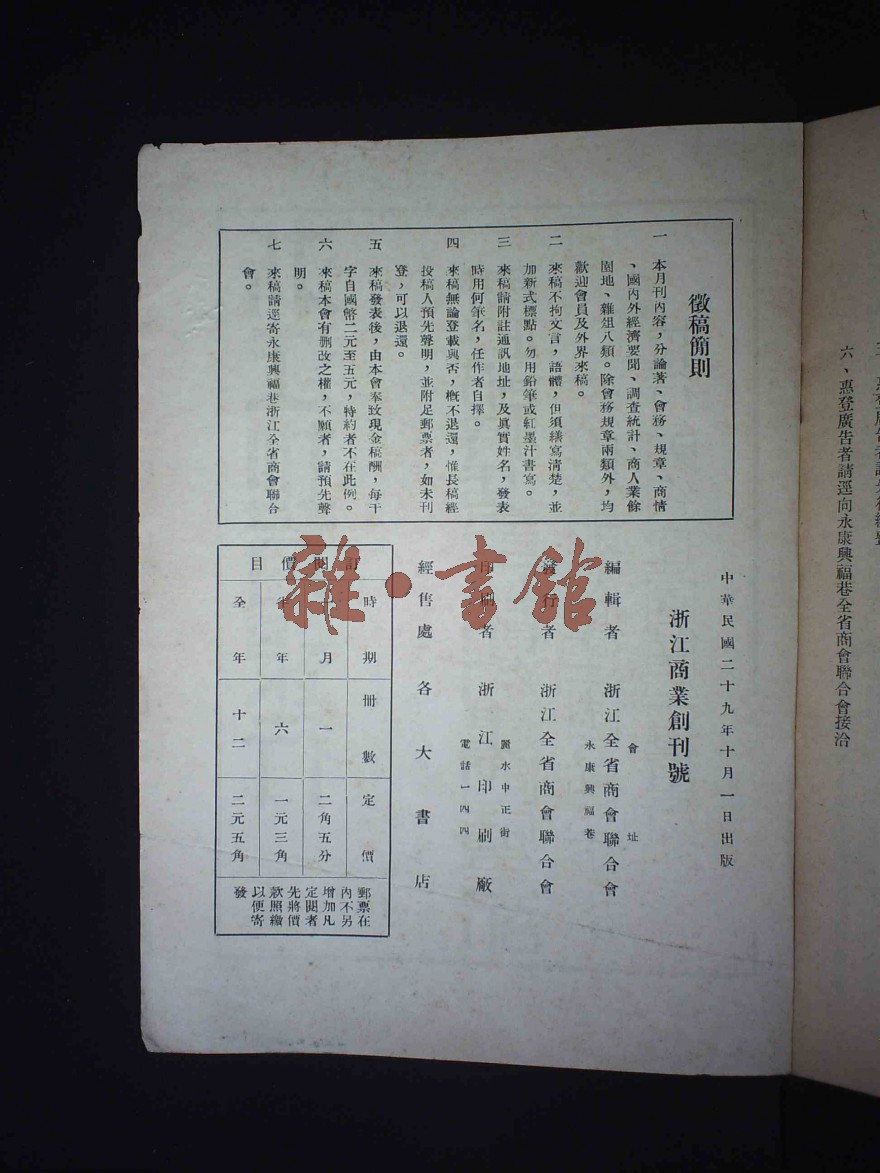 徵稿簡則
一　本月刊內容，分論著、會務、規章、商情
、國內外經濟要聞、調查統計、商人業餘
園地、雜俎八類。除會務規章兩類外，均
歡迎會員及外界來稿。
二　來稿不拘文言，語體，但須繕寫清楚，並
加新式標點。勿用鉛筆或紅墨汁書寫。
三　來稿請附註通訊地址，及眞實姓名，發表
時用何筆名，任作者自擇。
四　來稿無論登載與否，槪不退還，惟長稿經
投稿人預先聲明，並附足郵票者，如未刊
登，可以退還。
五　來稿發表後，由本會奉致現金稿酬，每千
字自國幣二元至五元，特約者不在此例。
六　來稿本會有删改之權，不願者，請預先聲
明。
七　來稿請逕寄永康興福巷浙江全省商會聯合
會。
中華民國二十九年十月一日出版
浙江商業創刊號
編輯者　浙江全省商會聯合會
會址
永康興福巷
發行者　浙江全省商會聯合會
印刷者　浙江印刷廠
麗水中正街
電話一四四
經售處　各大書店
訂閱價目
時期　冊數　定價
一月　一　二角五分
半年　六　一元三角
全年　十二　二元五角
郵票在
內不另
增加凡
定閱者
先將價
款照繳
以便寄
發
六、惠登廣告者請逕向永康興福巷全省商會聯合會接洽
雜·書館